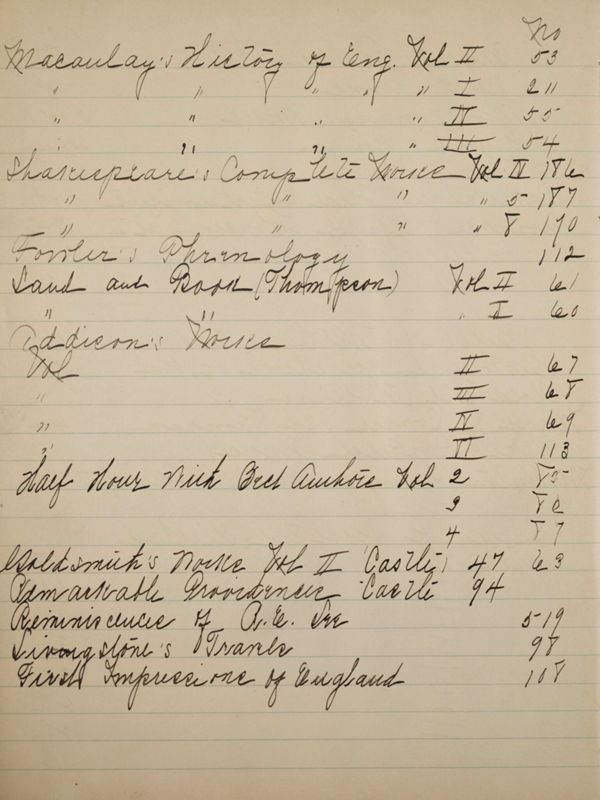 No
Macaulay's History of Eng. Vol II 53
" " " " " I 211
" " " " IV 55
" " " III 54
Shakespeare's Complete Works Vol IV 186
" " " " 5 187
" " " " 8 190
Fowler's Phrenology 112
Land and Book (Thompson) Vol II 61
" " " I 60
Addison's Works
Vol II 67
" III 68
" IV 69
" VI 113
Half Hour With Best Authors Vol 2 85
3 86
4 87
Goldsmith's Works Vol II (Castle) 47 63
Remarkable Providences Castle 94
Reminiscences of R. E. Lee 519
Livingstone's Travels 98
First Impressions of England 108